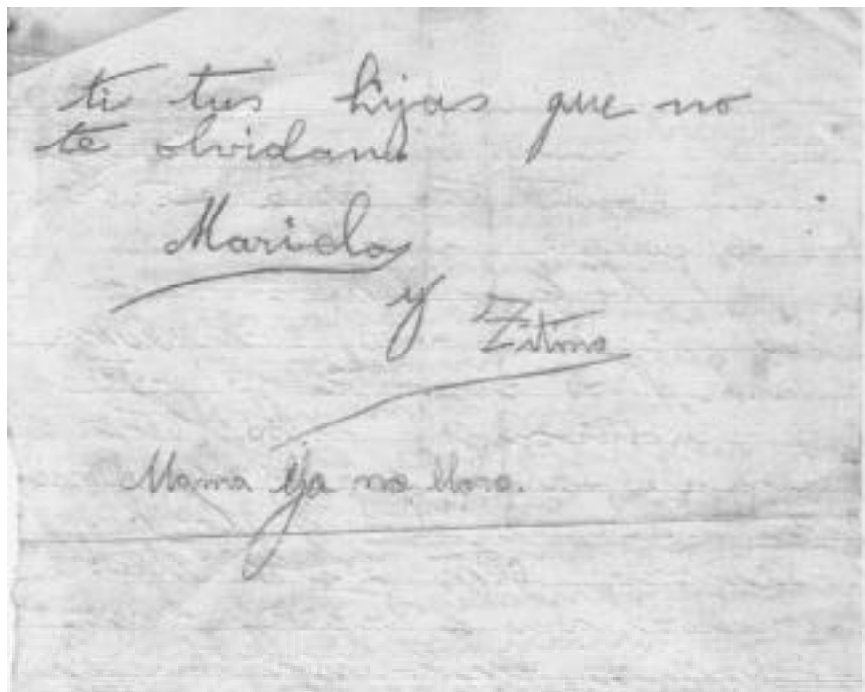 ti tus hijas que no
te olvidan.
Mariela
y Zitma
Mama ya no llora.